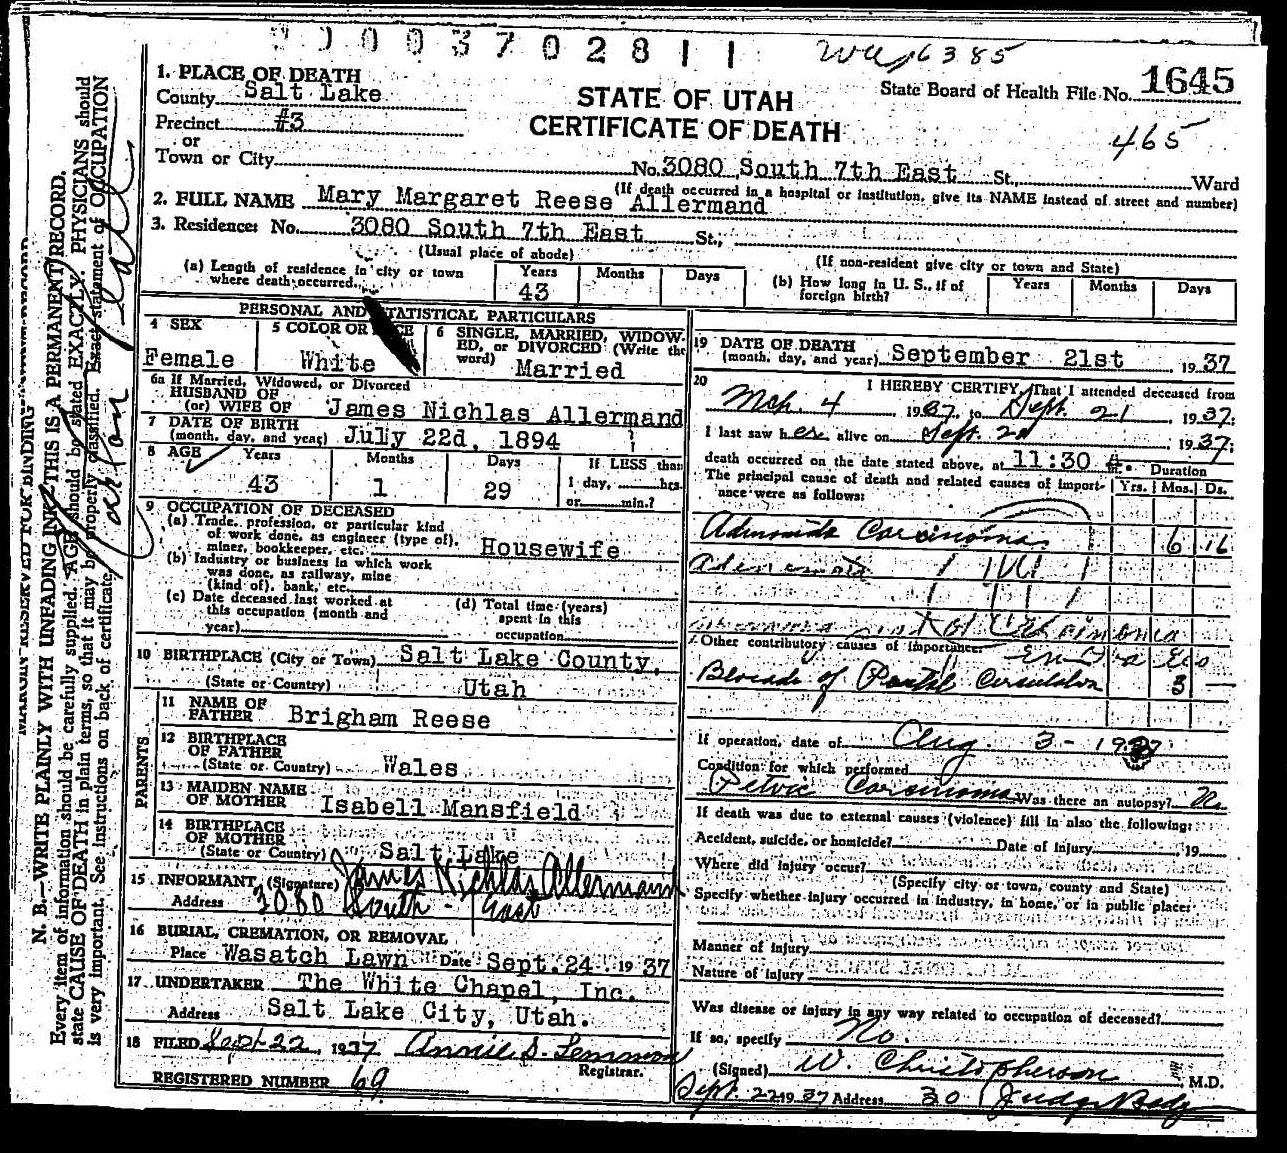 00037028 11
6385
1. PLACE OF DEATH
County Salt Lake
Precinct #3
or
Town or City
STATE OF UTAH
CERTIFICATE OF DEATH
State Board of Health File No. 1645
465
No. 3080 South 7th East St., Ward
(If death occurred in a hospital or institution, give its NAME instead of street and number)
2. FULL NAME Mary Margaret Reese Allermand
3. Residence: No. 3080 South 7th East St.,
(Usual place of abode)
(If non-resident give city or town and State)
(a) Length of residence in city or town where death occurred Years 43 Months Days
(b) How long in U. S., if of foreign birth? Years Months Days
PERSONAL AND STATISTICAL PARTICULARS
4 SEX Female
5 COLOR OR RACE White
6 SINGLE, MARRIED, WIDOWED, OR DIVORCED (Write the word) Married
6a If Married, Widowed, or Divorced
HUSBAND OF
(or) WIFE OF James Nichlas Allermand
7 DATE OF BIRTH
(month, day, and year) July 22d, 1894
8 AGE Years 43 Months 1 Days 29 If LESS than 1 day, hrs. or min.?
9 OCCUPATION OF DECEASED
(a) Trade, profession, or particular kind of work done, as engineer (type of), miner, bookkeeper, etc. Housewife
(b) Industry or business in which work was done, as railway, mine (kind of), bank, etc.
(c) Date deceased last worked at this occupation (month and year)
(d) Total time (years) spent in this occupation
10 BIRTHPLACE (City or Town) Salt Lake County,
(State or Country) Utah
PARENTS
11 NAME OF FATHER Brigham Reese
12 BIRTHPLACE OF FATHER
(State or Country) Wales
13 MAIDEN NAME OF MOTHER Isabell Mansfield
14 BIRTHPLACE OF MOTHER
(State or Country) Salt Lake
15 INFORMANT (Signature) James Nichlas Allermand
Address 3080 South 7 East
16 BURIAL, CREMATION, OR REMOVAL
Place Wasatch Lawn Date Sept. 24 1937
17 UNDERTAKER The White Chapel, Inc.
Address Salt Lake City, Utah.
18 FILED Sept 22, 1937 Annie S. Lemmon
Registrar.
REGISTERED NUMBER 69
19 DATE OF DEATH
(month, day, and year) September 21st 1937
20 I HEREBY CERTIFY, That I attended deceased from
Mch. 4 1937, to Sept. 21 1937;
I last saw her alive on Sept. 20 1937;
death occurred on the date stated above, at 11:30 m. Duration
The principal cause of death and related causes of importance were as follows: Yrs. Mos. Ds.
Carcinoma 6 16
Other contributory causes of importance:
of Portal 3
If operation, date of Aug. 3 - 1937
Condition for which performed
Pelvic Carcinoma Was there an autopsy? No
If death was due to external causes (violence) fill in also the following:
Accident, suicide, or homicide? Date of Injury 19
Where did injury occur?
(Specify city or town, county and State)
Specify whether injury occurred in industry, in home, or in public place:
Manner of injury
Nature of injury
Was disease or injury in any way related to occupation of deceased?
If so, specify No.
(Signed) W. Christopherson, M.D.
Sept. 22 1937 Address 30 Judge Bldg
N. B.—WRITE PLAINLY WITH UNFADING INK—THIS IS A PERMANENT RECORD.
Every item of information should be carefully supplied. AGE should be stated EXACTLY. PHYSICIANS should
state CAUSE OF DEATH in plain terms, so that it may be properly classified. Exact statement of OCCUPATION
is very important. See instructions on back of certificate.
MARGIN RESERVED FOR BINDING